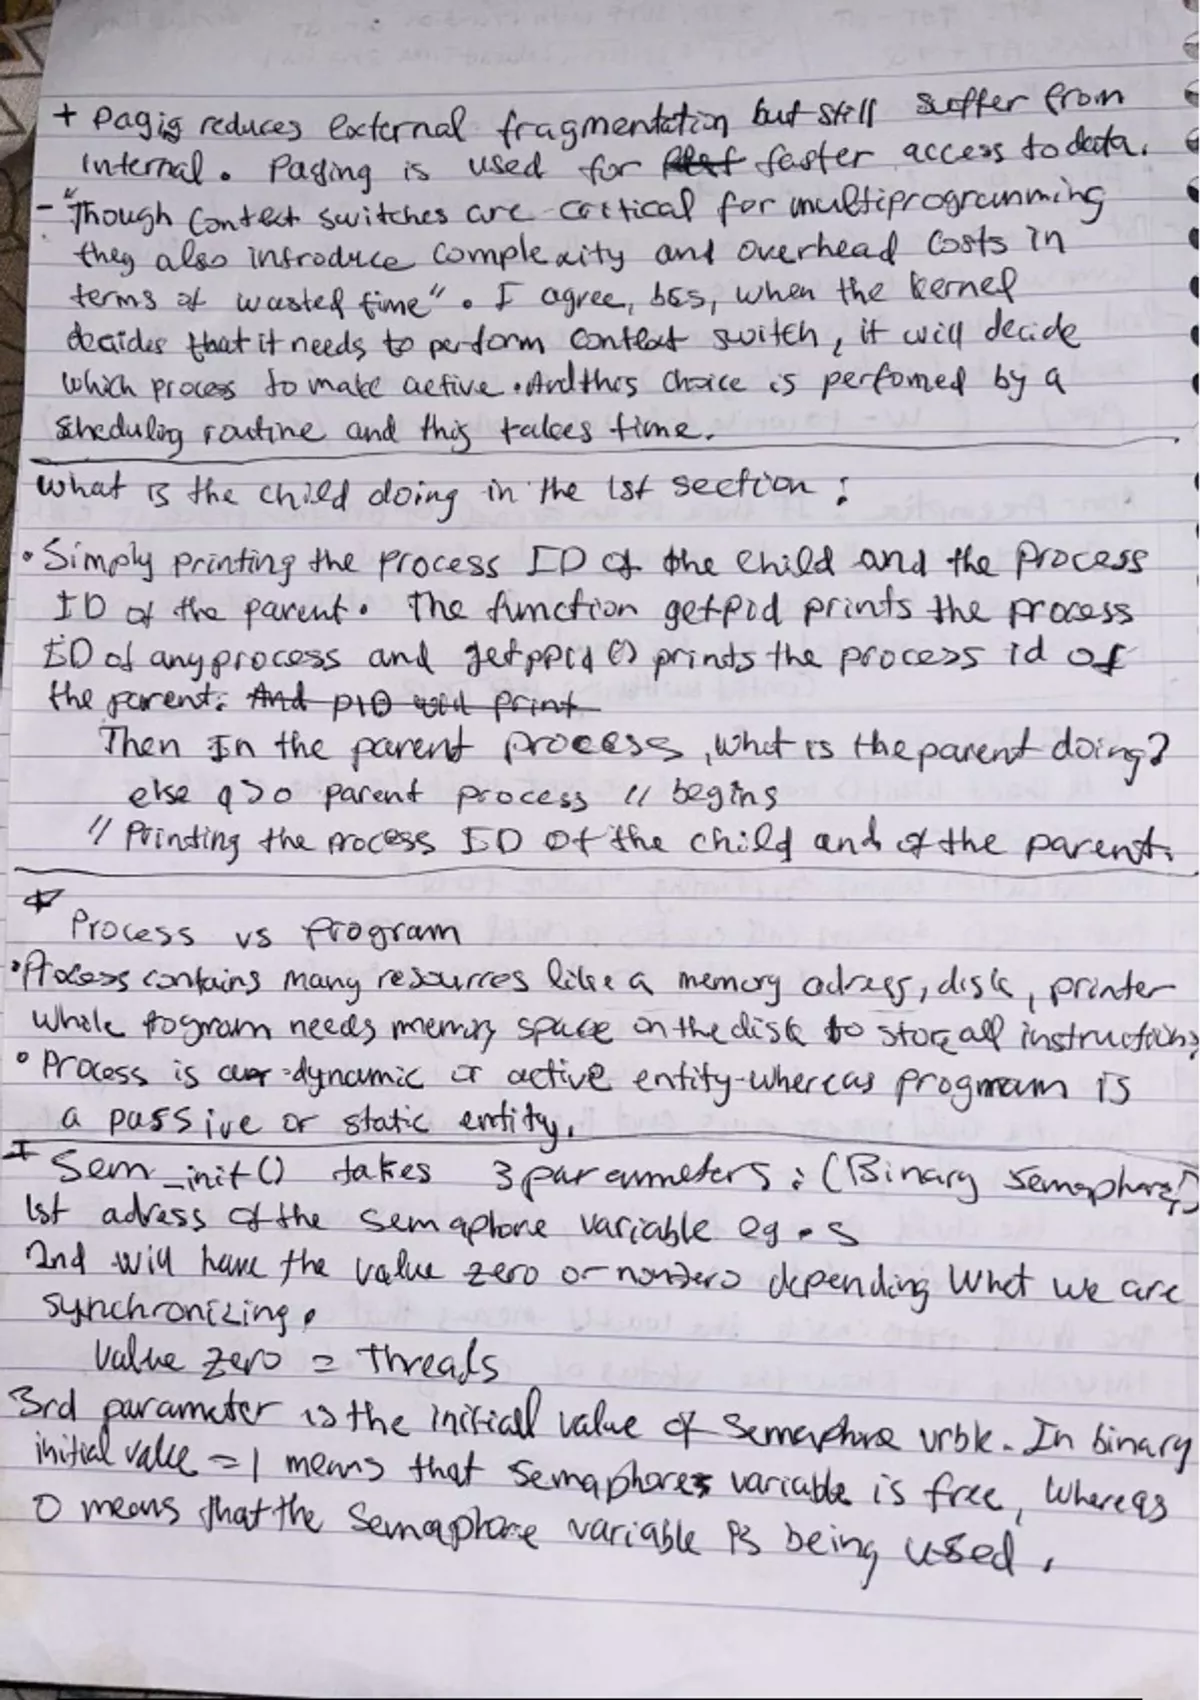 + Pagig reduces External fragmentation but still suffer from
internal. Paging is used for faster access to data.
- "Though Context switches are critical for multiprogramming
they also introduce complexity and overhead costs in
terms of wasted time". I agree, bcs, when the kernel
decides that it needs to perform context switch, it will decide
which process to make active. And this choice is perfomed by a
sheduling routine and this takes time.
What is the child doing in the 1st section:
• Simply printing the process ID of the child and the process
ID of the parent. The function getpid prints the process
ID of any process and getppid () prints the process id of
the parent. And PID will print
Then In the parent process, what is the parent doing?
else q>0 parent process // begins
// Printing the process ID Of the child and of the parent.
Process vs Program
• Process contains many resources like a memory adress, disk, printer
while program needs memory space on the disk to store all instructions
• Process is a dynamic or active entity-whereas program is
a passive or static entity.
Sem_init () takes 3 parammeters: (Binary Semaphore)
1st adress of the semaphore variable eg. s
2nd will have the value zero or nonzero depending What we are
synchronizing.
Value zero = threads
3rd parameter is the initiall value of Semaphore vrble. In binary
initial value = 1 means that semaphores variable is free, Whereas
0 means that the Semaphore variable is being used.